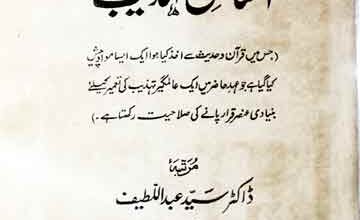 اساس تہذیب
(جس میں قرآن و حدیث سے اخذ کیا ہوا ایک ایسا مواد پیش
کیا گیا ہے جو عہد حاضر میں ایک عالمگیر تہذیب کی تعمیر کیلئے
بنیادی عنصر قرار پانے کی صلاحیت رکھتا ہے۔)
مرتبہٗ
ڈاکٹر سید عبد اللطیف